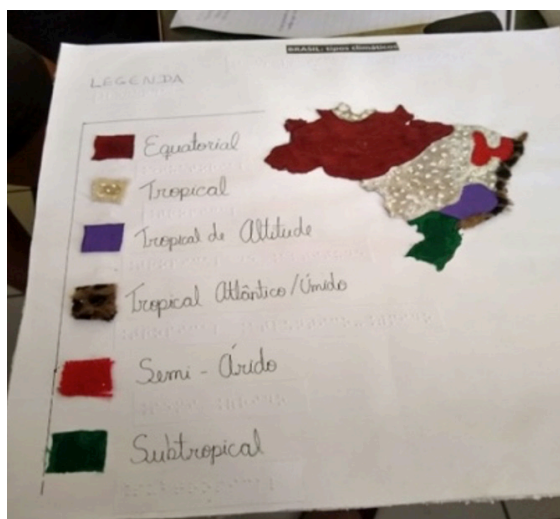 BRASIL: tipos climáticos
LEGENDA
Equatorial
Tropical
Tropical de Altitude
Tropical Atlântico/Úmido
Semi-Árido
Subtropical